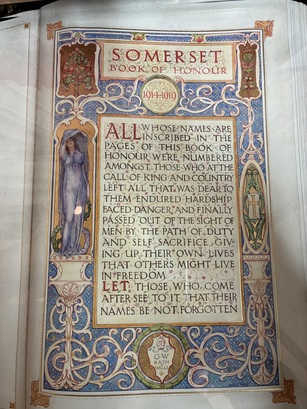 SOMERSET
BOOK OF HONOUR
1914-1919
ALL WHOSE NAMES ARE
INSCRIBED IN THE
PAGES OF THIS BOOK OF
HONOUR WERE NUMBERED
AMONGST THOSE WHO AT THE
CALL OF KING AND COUNTRY
LEFT ALL THAT WAS DEAR TO
THEM ENDURED HARDSHIP
FACED DANGER, AND FINALLY
PASSED OUT OF THE SIGHT OF
MEN BY THE PATH OF DUTY
AND SELF SACRIFICE GIV-
ING UP THEIR OWN LIVES
THAT OTHERS MIGHT LIVE
IN FREEDOM
LET THOSE WHO COME
AFTER SEE TO IT THAT THEIR
NAMES BE NOT FORGOTTEN
G·W
BATH